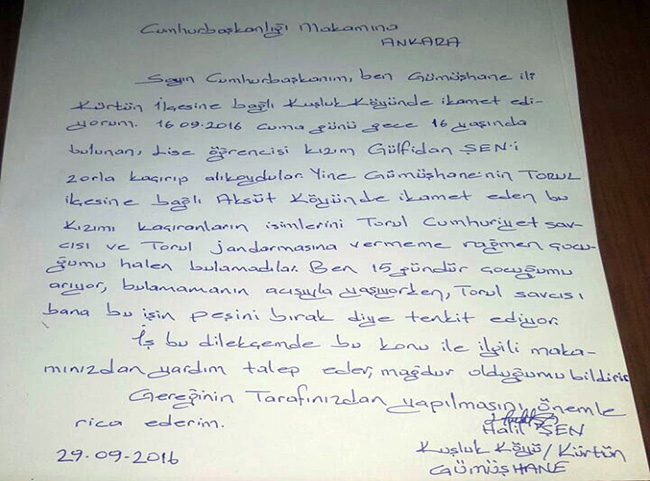 Cumhurbaşkanlığı Makamına
ANKARA
Sayın Cumhurbaşkanım, ben Gümüşhane ili
Kürtün İlçesine bağlı Kuşluk Köyünde ikamet edi-
yorum. 16.09.2016 cuma günü gece 16 yaşında
bulunan, Lise öğrencisi kızım Gülfidan ŞEN'i
zorla kaçırıp alıkoydular. Yine Gümüşhane'nin TORUL
ilçesine bağlı Aksüt Köyünde ikamet eden bu
Kızımı kaçıranların isimlerini Torul Cumhuriyet sav-
cısı ve Torul jandarmasına vermeme rağmen çocu-
ğumu halen bulamadılar. Ben 15 gündür çocuğumu
arıyor, bulamamanın acısıyla yaşıyorken, Torul savcısı
bana bu işin peşini bırak diye tenkit ediyor.
İş bu dilekçemde bu konu ile ilgili maka-
mınızdan yardım talep eder, mağdur olduğumu bildirir
Gereğinin Tarafınızdan yapılmasını önemle
rica ederim.
Halil ŞEN
29.09.2016
Kuşluk Köyü/Kürtün
GÜMÜŞHANE